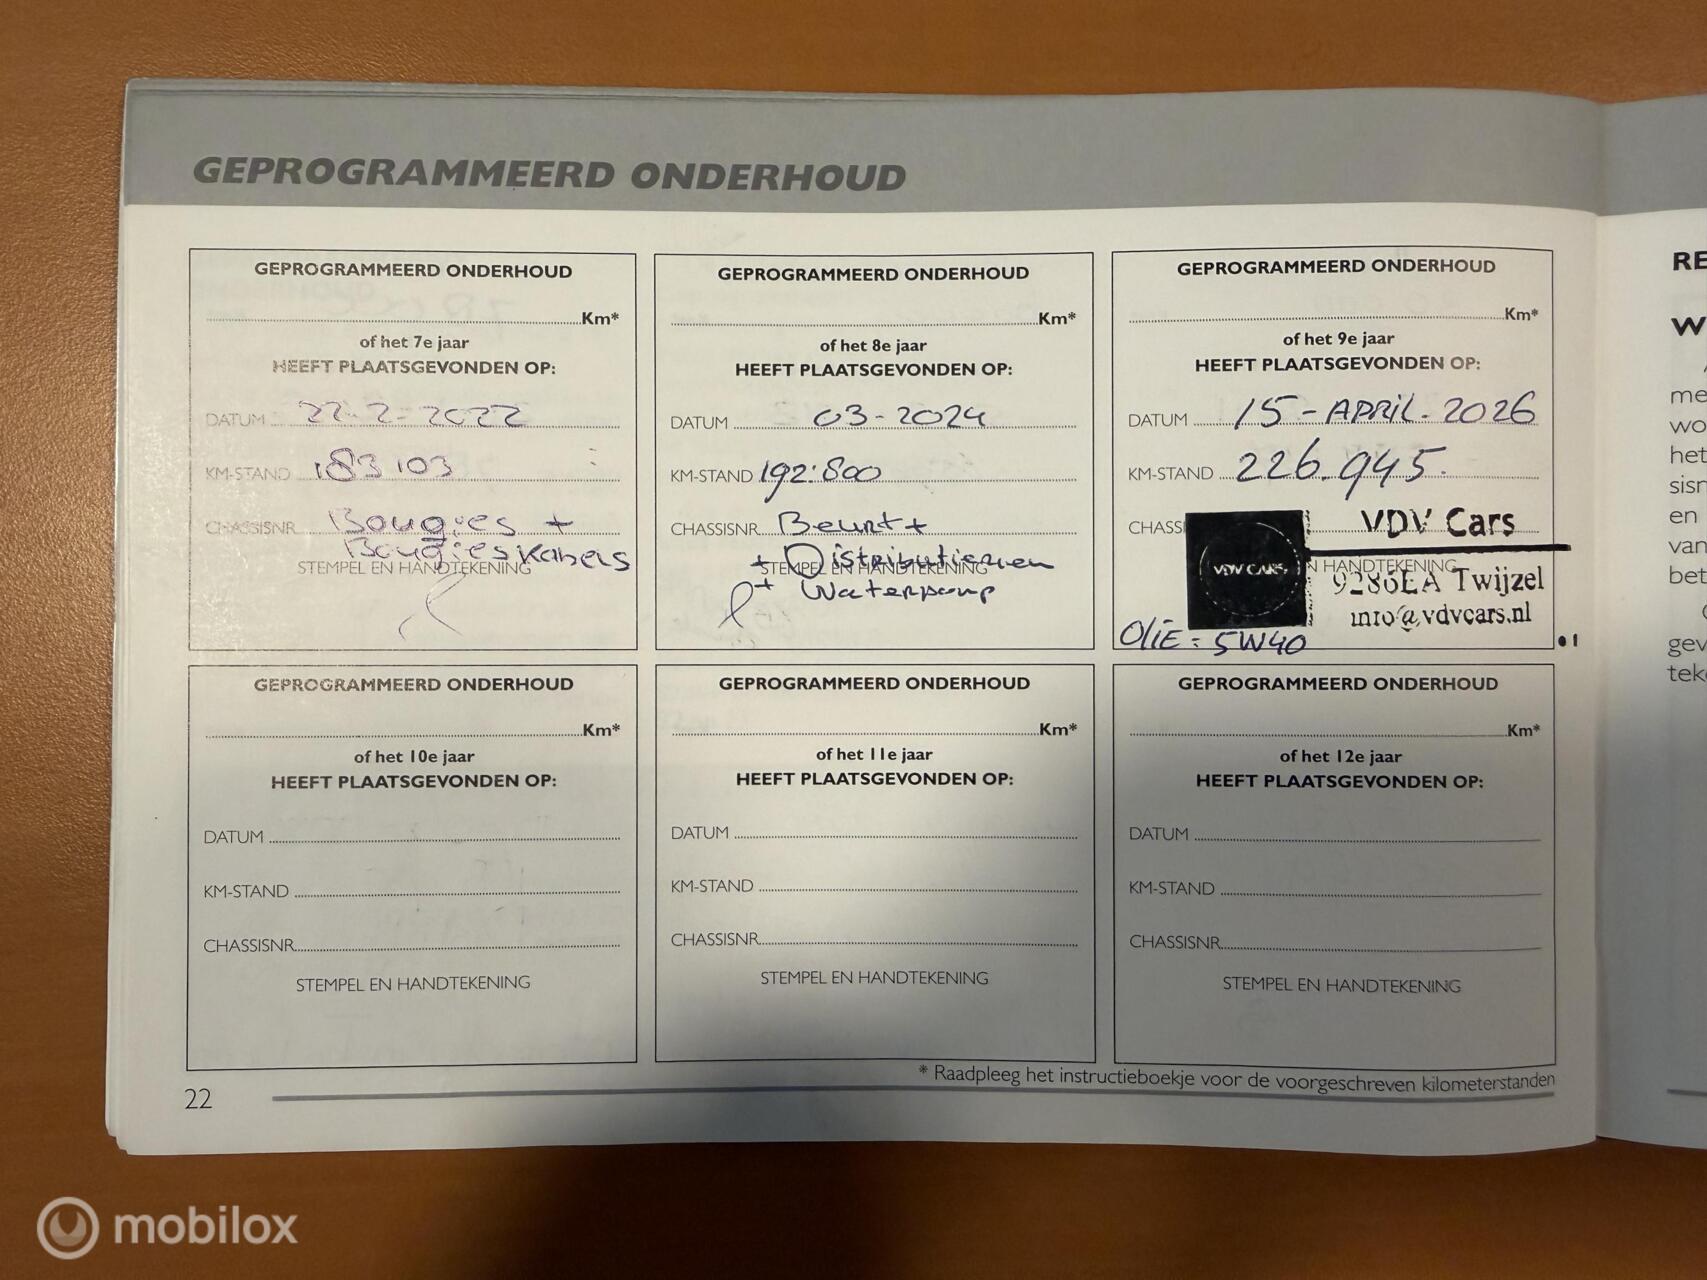 GEPROGRAMMEERD ONDERHOUD
GEPROGRAMMEERD ONDERHOUD
Km*
of het 7e jaar
HEEFT PLAATSGEVONDEN OP:
DATUM 22-2-2022
KM-STAND 183103
CHASSISNR. Bougies +
Bougieskabels
STEMPEL EN HANDTEKENING
GEPROGRAMMEERD ONDERHOUD
Km*
of het 8e jaar
HEEFT PLAATSGEVONDEN OP:
DATUM 03-2024
KM-STAND 192.800
CHASSISNR. Beurt +
+ Distributieriem
STEMPEL EN HANDTEKENING
+ Waterpomp
GEPROGRAMMEERD ONDERHOUD
Km*
of het 9e jaar
HEEFT PLAATSGEVONDEN OP:
DATUM 15-APRIL-2026
KM-STAND 226.945.
CHASSI
VDV Cars
VDV CARS
N HANDTEKENING
9286EA Twijzel
info@vdvcars.nl
OliE: 5W40
GEPROGRAMMEERD ONDERHOUD
Km*
of het 10e jaar
HEEFT PLAATSGEVONDEN OP:
DATUM
KM-STAND
CHASSISNR.
STEMPEL EN HANDTEKENING
GEPROGRAMMEERD ONDERHOUD
Km*
of het 11e jaar
HEEFT PLAATSGEVONDEN OP:
DATUM
KM-STAND
CHASSISNR.
STEMPEL EN HANDTEKENING
GEPROGRAMMEERD ONDERHOUD
Km*
of het 12e jaar
HEEFT PLAATSGEVONDEN OP:
DATUM
KM-STAND
CHASSISNR.
STEMPEL EN HANDTEKENING
* Raadpleeg het instructieboekje voor de voorgeschreven kilometerstanden
22
RE
W
me
wo
het
sisn
en
van
bet
gev
teke
mobilox